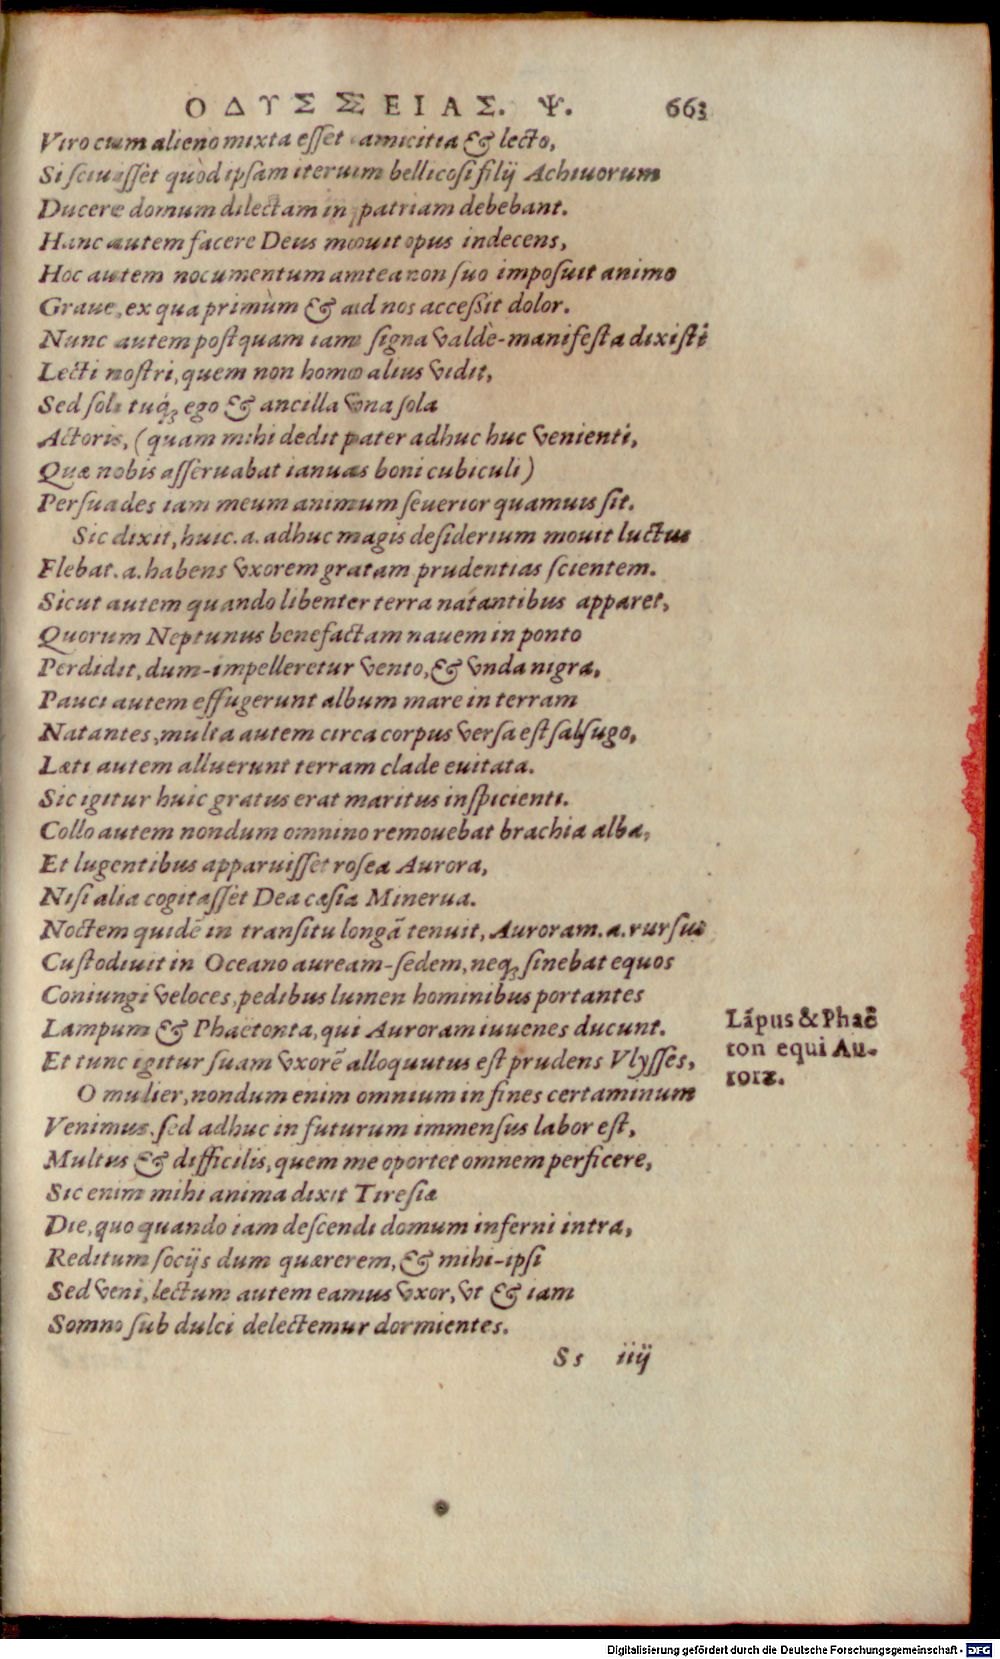 ΟΔΥΣΣΕΙΑΣ. Ψ. 663
Viro cum alieno mixta eſſet amicitia & lecto,
Si ſciuiſſet quòd ipſam iterum bellicoſi filij Achiuorum
Ducere domum dilectam in patriam debebant.
Hanc autem facere Deus mouit opus indecens,
Hoc autem nocumentum antea non ſuo impoſuit animo
Graue, ex qua primùm & ad nos acceßit dolor.
Nunc autem poſtquam iam ſigna valdè-manifeſta dixiſti
Lecti noſtri, quem non homo alius vidit,
Sed ſoli tuq́; ego & ancilla vna ſola
Actoris, (quam mihi dedit pater adhuc huc venienti,
Quæ nobis aſſeruabat ianuas boni cubiculi)
Perſuades iam meum animum ſeuerior quamuis ſit.
Sic dixit, huic. a. adhuc magis deſiderium mouit luctus
Flebat. a. habens vxorem gratam prudentias ſcientem.
Sicut autem quando libenter terra natantibus apparet,
Quorum Neptunus benefactam nauem in ponto
Perdidit, dum-impelleretur vento, & vnda nigra,
Pauci autem effugerunt album mare in terram
Natantes, multa autem circa corpus verſa eſt ſalſugo,
Læti autem alluerunt terram clade euitata.
Sic igitur huic gratus erat maritus inſpicienti.
Collo autem nondum omnino remouebat brachia alba,
Et lugentibus apparuiſſet roſea Aurora,
Niſi alia cogitaſſet Dea cæſia Minerua.
Noctem quidē in tranſitu longā tenuit, Auroram. a. rurſus
Cuſtodiuit in Oceano auream-ſedem, neq; ſinebat equos
Coniungi veloces, pedibus lumen hominibus portantes
Lampum & Phaëtonta, qui Auroram iuuenes ducunt.
Et tunc igitur ſuam vxorē alloquutus eſt prudens Vlyſſes,
O mulier, nondum enim omnium in fines certaminum
Venimus, ſed adhuc in futurum immenſus labor eſt,
Multus & difficilis, quem me oportet omnem perficere,
Sic enim mihi anima dixit Tireſiæ
Die, quo quando iam deſcendi domum inferni intra,
Reditum ſocijs dum quærerem, & mihi-ipſi
Sed veni, lectum autem eamus vxor, vt & iam
Somno ſub dulci delectemur dormientes.
Ss iiij
Lāpus & Phaë
ton equi Au-
roræ.
Digitalisierung gefördert durch die Deutsche Forschungsgemeinschaft - DFG